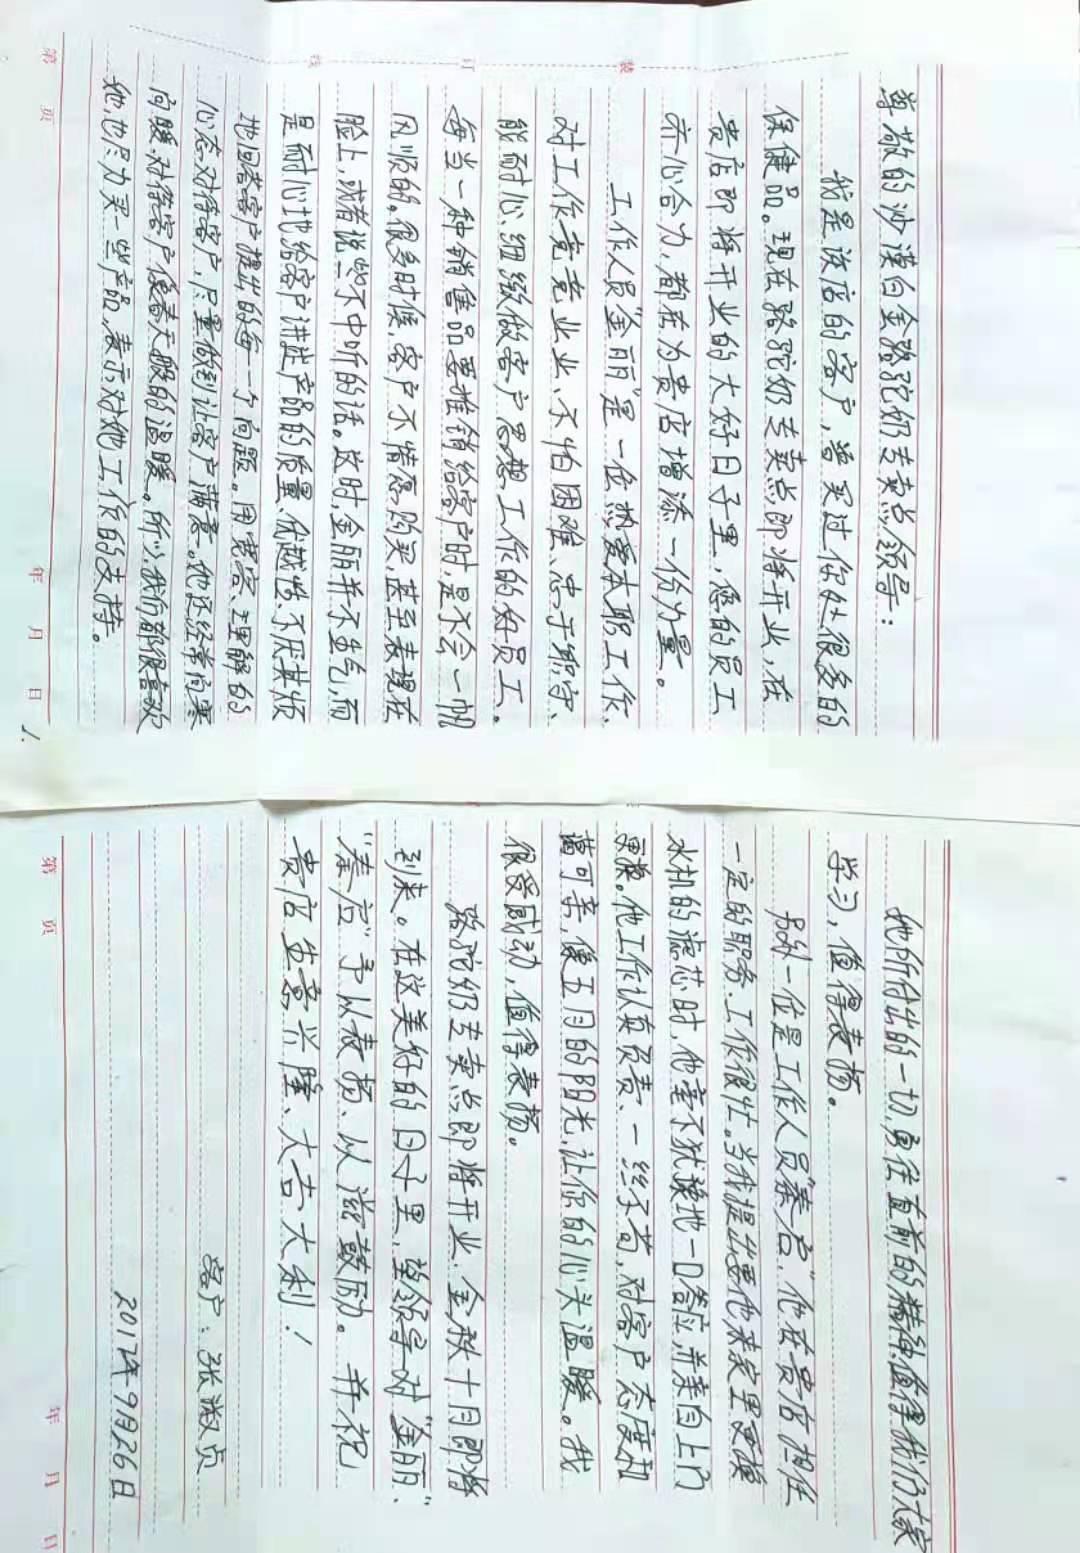 尊敬的沙漠白金骆驼奶专卖点领导：
我是该店的客户，曾买过你处很多的
保健品。现在骆驼奶专卖点即将开业，在
贵店即将开业的大好日子里，您的员工
齐心合力，都在为贵店增添一份力量。
工作人员“金丽”是一位热爱本职工作、
对工作兢兢业业、不怕困难、忠于职守、
能耐心细致做客户思想工作的好员工。
每当一种销售品要推销给客户时，是不会一帆
风顺的。很多时候，客户不情愿购买，甚至表现在
脸上，或者说一些不中听的话。这时，金丽并不生气，而
是耐心地给客户讲述产品的质量、优越性，不厌其烦
地回答客户提出的每一个问题。用宽容、理解的
心态对待客户，尽量做到让客户满意。她还经常问寒
问暖，对待客户像春天般的温暖。所以，我们都很喜欢
她，也尽力买一些产品，表示对她工作的支持。
第 页
年 月 日
1.
装 订 线
她所付出的一切，勇往直前的精神值得我们大家
学习，值得表扬。
另外一位是工作人员“秦启”，他在贵店担任
一定的职务，工作很忙。当我提出要他来家里更换
水机的滤芯时，他毫不犹豫地一口答应，并亲自上门
更换。他工作认真负责、一丝不苟，对客户态度和
蔼可亲，像五月的阳光，让你的心头温暖。我
很受感动，值得表扬。
骆驼奶专卖点即将开业，金秋十月即将
到来。在这美好的日子里，望领导对“金丽”、
“秦启”予以表扬、以滋鼓励。并祝
贵店生意兴隆、大吉大利！
客户：张淑贞
2017年9月26日
第 页
年 月 日